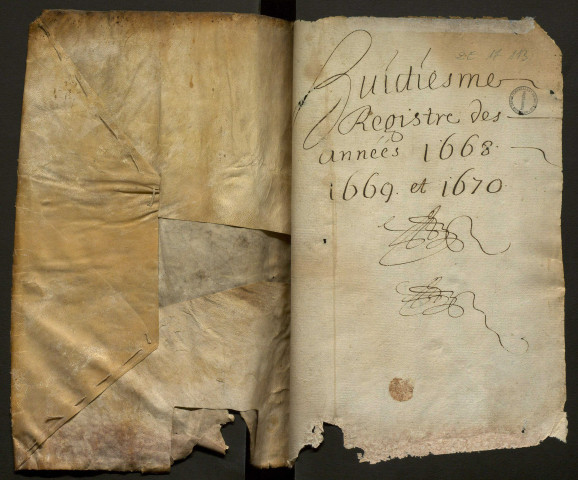 Huictiesme
Registre des
années 1668.
1669. et 1670